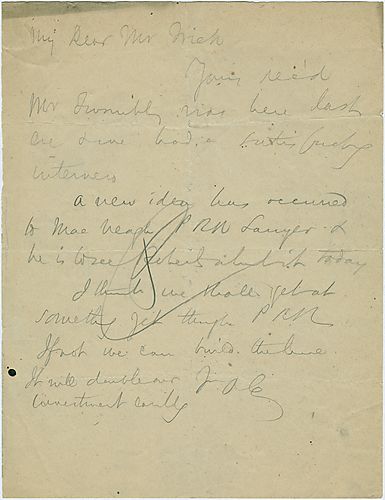 My Dear Mr Frick
Yours rec'd
Mr Twombly was here last
eve & we had a satisfactory
interview
A new idea has occurred
to Mac Veagh P RR Lawyer &
he is to see Roberts about it today
I think we shall get at
something yet through P RR
If not we can build the line
It will double our
investment easily